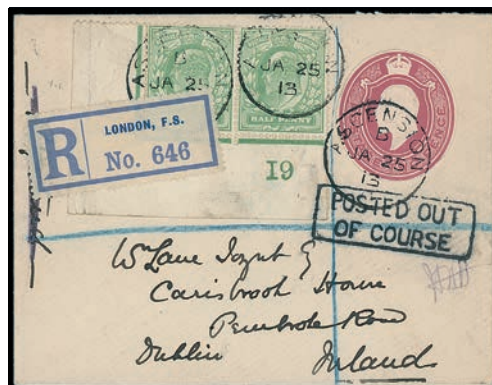 B
JA 25
JA 25
13
HALF PENNY
LONDON, F.S.
R No. 646
I9
ASCENSION
B
JA 25
13
POSTED OUT
OF COURSE
Wm Lane Joynt
Carisbrook House
Pembroke Road
Dublin Ireland